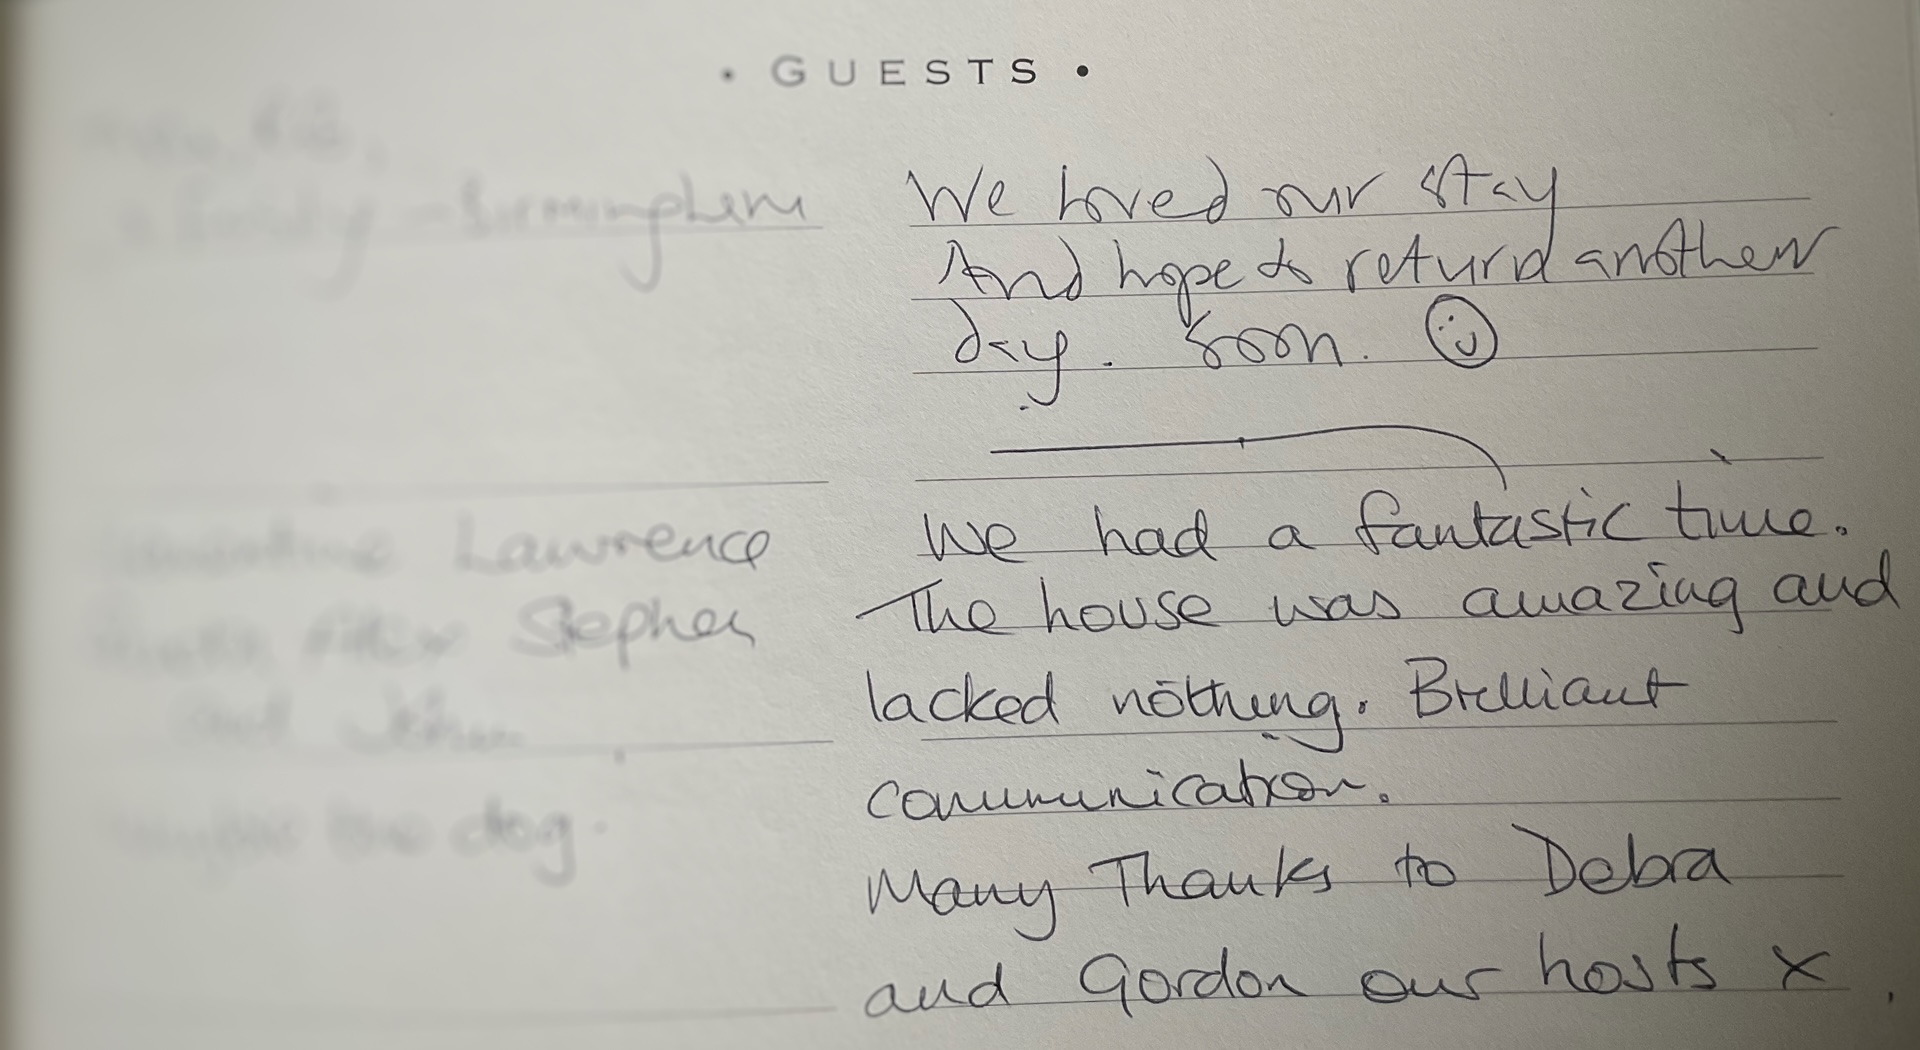 • GUESTS •
Birmingham
We loved our stay
And hope to return another
day. Soon.
Lawrence
Stephen
and John
the dog.
We had a fantastic time.
The house was amazing and
lacked nothing. Brilliant
communication.
Many Thanks to Debra
and Gordon our hosts x